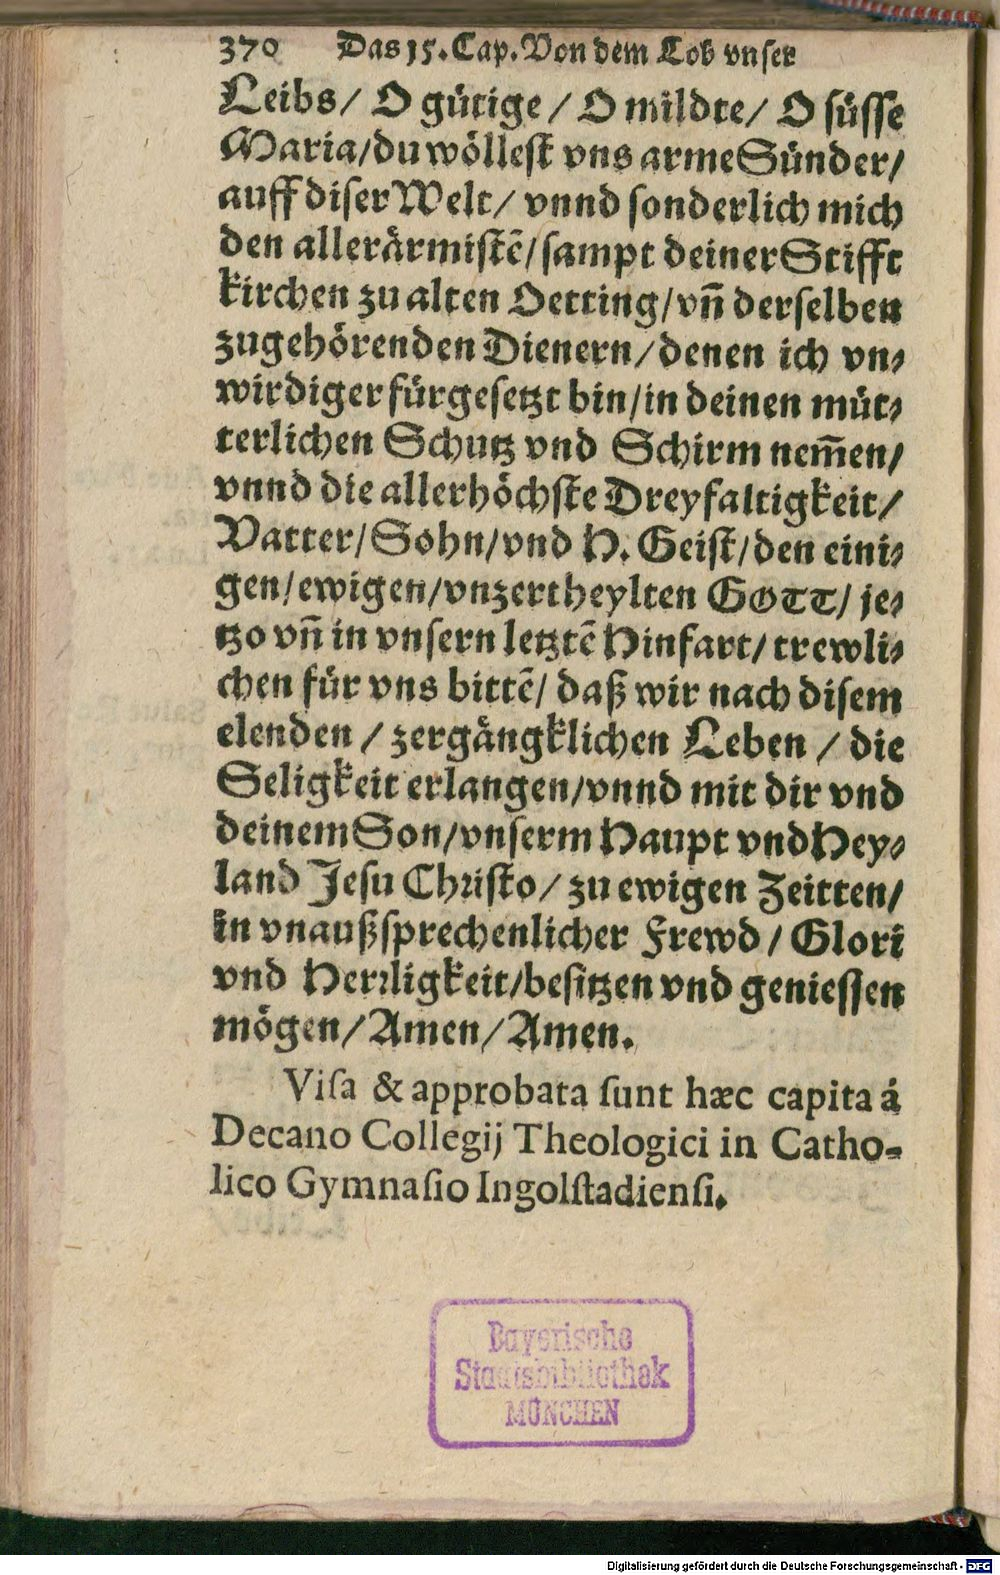 370 Das 15. Cap. Von dem Lob vnser
Leibs/ O gütige/ O mildte/ O süsse
Maria/ du wöllest vns arme Sünder/
auff diser Welt/ vnnd sonderlich mich
den allerärmistē/ sampt deiner Stifft
kirchen zu alten Oetting/ vñ derselben
zugehörenden Dienern/ denen ich vn-
wirdiger fürgesetzt bin/ in deinen müt-
terlichen Schutz vnd Schirm nem̃en/
vnnd die allerhöchste Dreyfaltigkeit/
Vatter/ Sohn/ vnd H. Geist/ den eini-
gen/ ewigen/ vnzertheylten GOTT/ je-
tzo vñ in vnsern letztē Hinfart/ trewli-
chen für vns bittē/ daß wir nach disem
elenden/ zergängklichen Leben/ die
Seligkeit erlangen/ vnnd mit dir vnd
deinem Son/ vnserm Haupt vnd Hey-
land Jesu Christo/ zu ewigen Zeitten/
in vnaußsprechenlicher Frewd/ Glori
vnd Herrligkeit/ besitzen vnd geniessen
mögen/ Amen/ Amen.
Visa & approbata sunt hæc capita á
Decano Collegij Theologici in Catho-
lico Gymnasio Ingolstadiensi.
Bayerische
Staatsbibliothek
MÜNCHEN
Digitalisierung gefördert durch die Deutsche Forschungsgemeinschaft - DFG